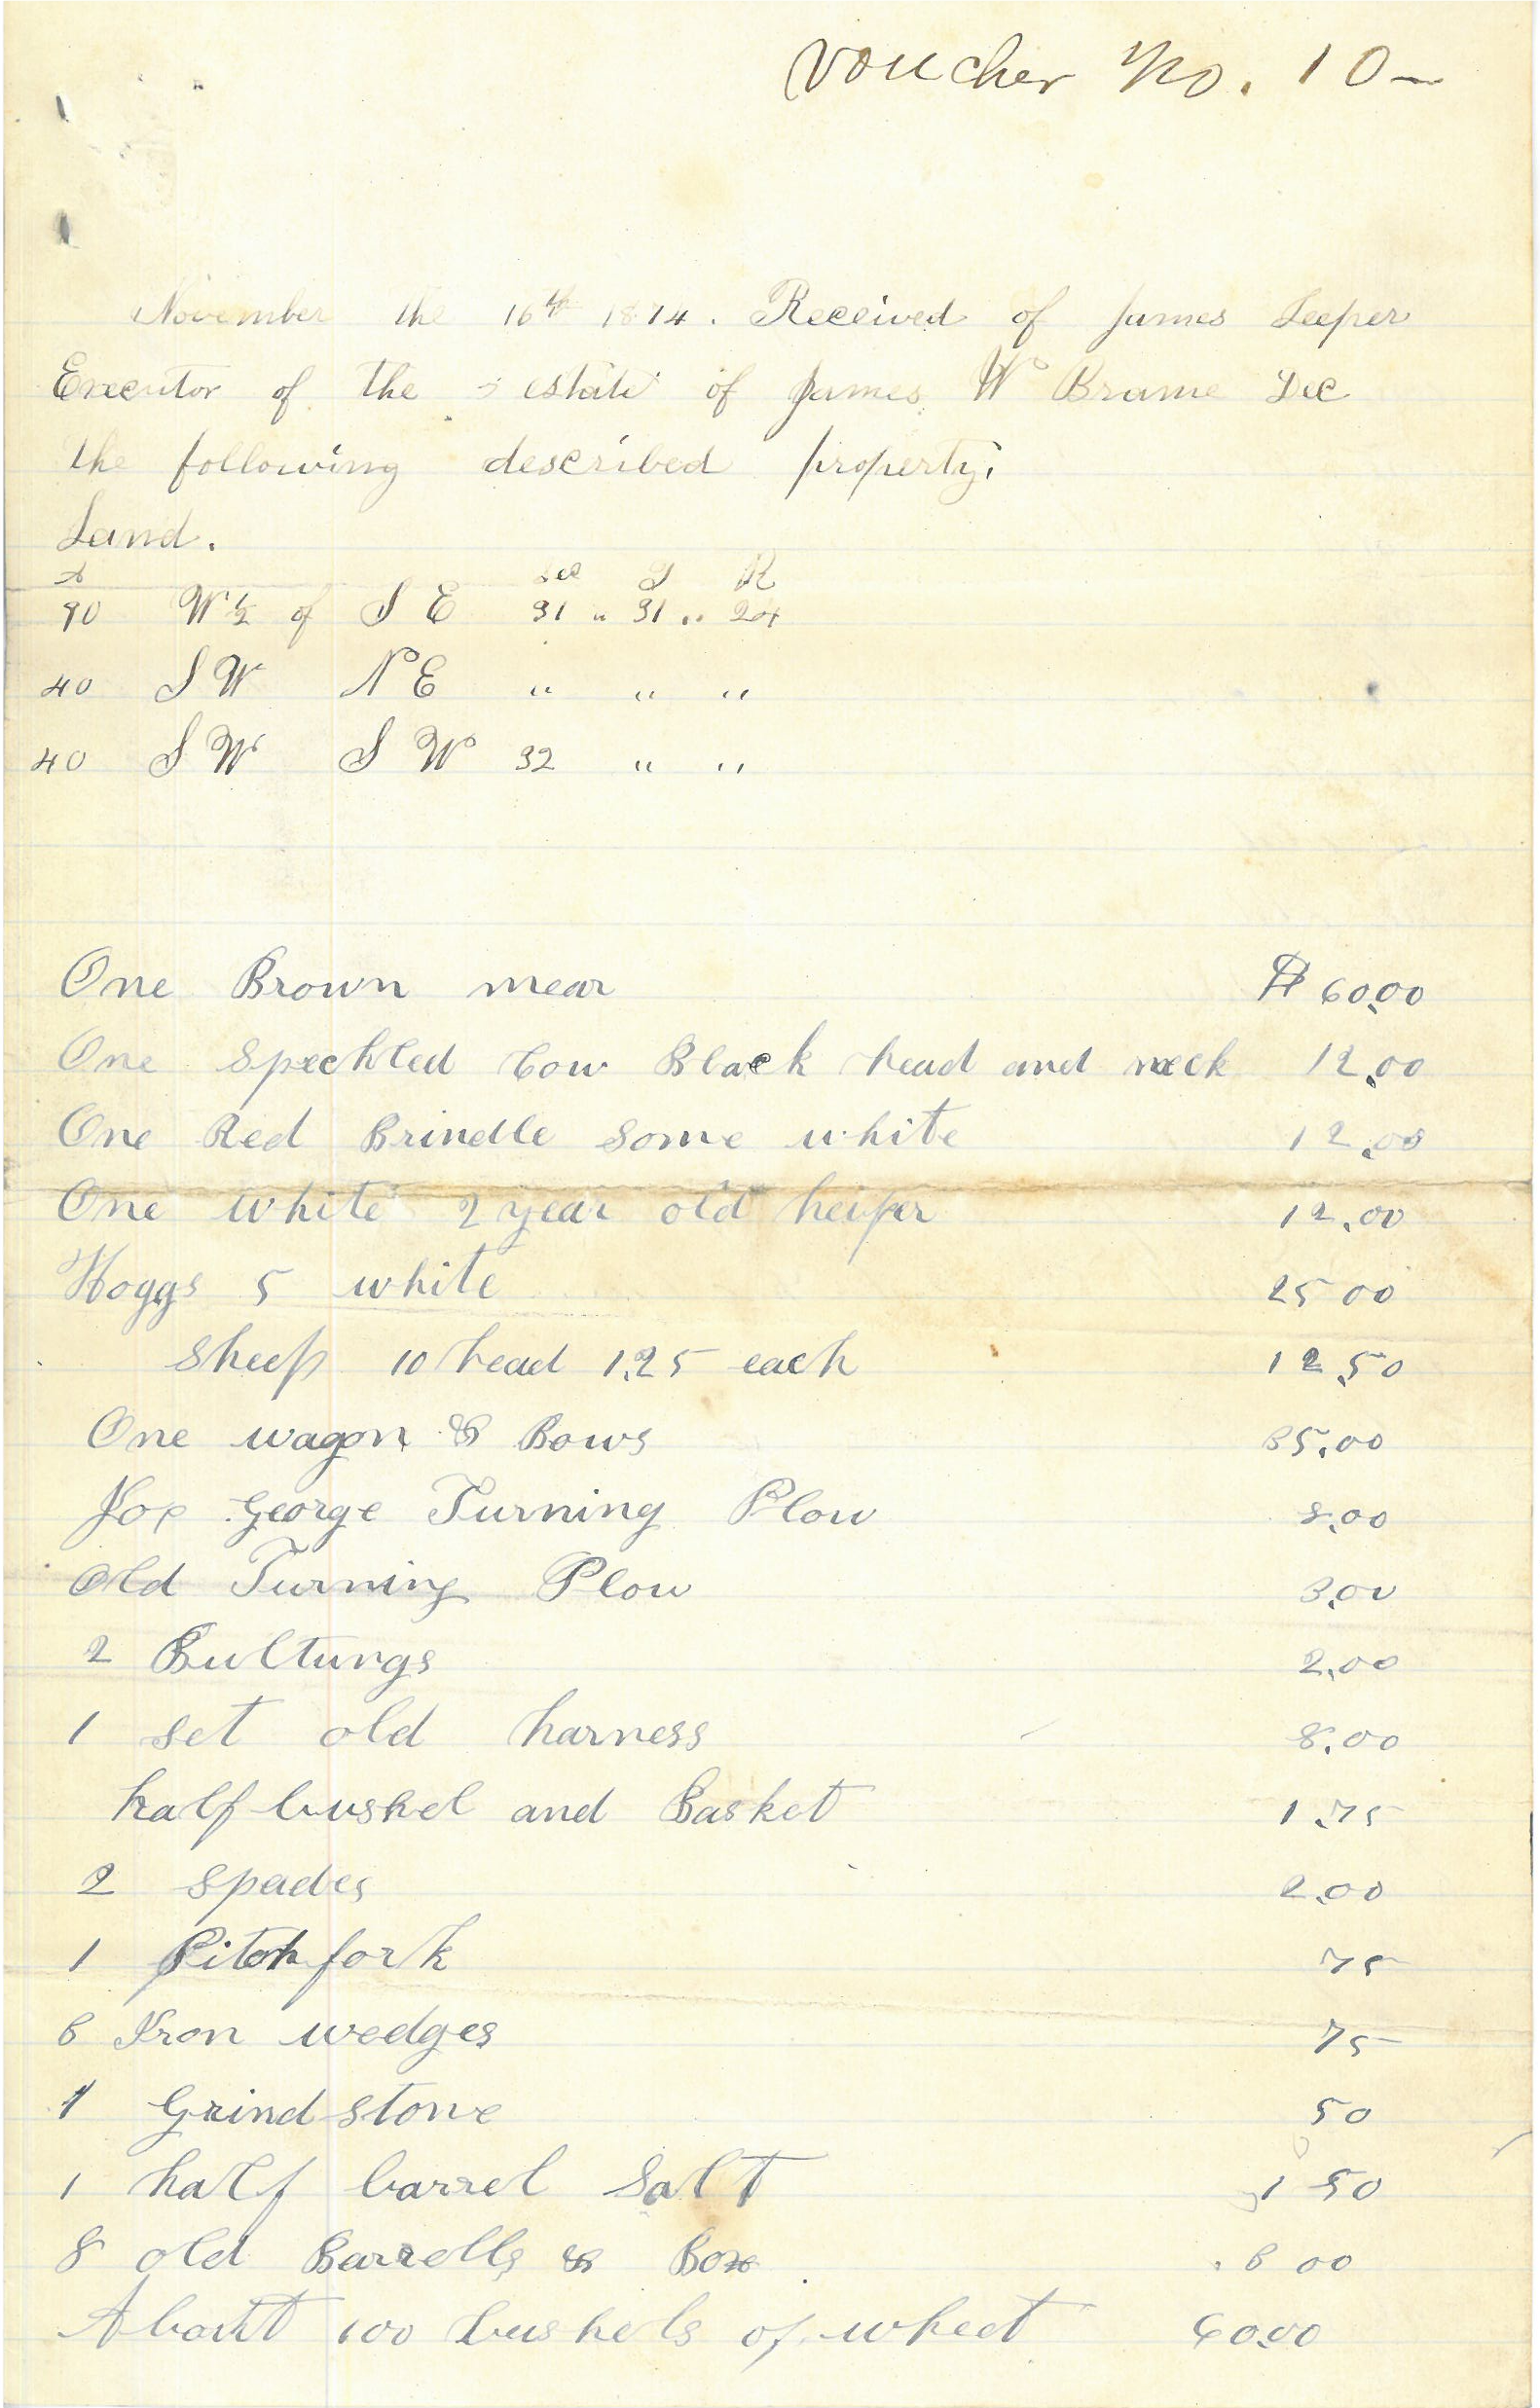 Voucher No. 10—
November the 16th 1874. Received of James Leeper
Executor of the estate of James W Brame Dec
the following described property;
Land.
A Sec T R
90 W ½ of S E 31 " 31 " 24
40 S W N E " " "
40 S W S W 32 " "
One Brown mear $ 60.00
One Speckled Cow Black head and neck 12.00
One Red Brindle Some white 12.00
One white 2 year old heifer 12.00
Hoggs 5 white 25 00
Sheep 10 head 1.25 each 12.50
One wagon & Bows 35.00
Joe George Turning Plow 8.00
Old Turning Plow 3.00
2 Bulturgs 2.00
1 Set old harness 8.00
half bushel and Basket 1.75
2 Spades 2.00
1 Pitch fork 75
6 Iron wedges 75
1 Grind stone 50
1 half barrel Salt 1 50
8 old Barrells & Box 00
About 100 bushels of wheet 60.00